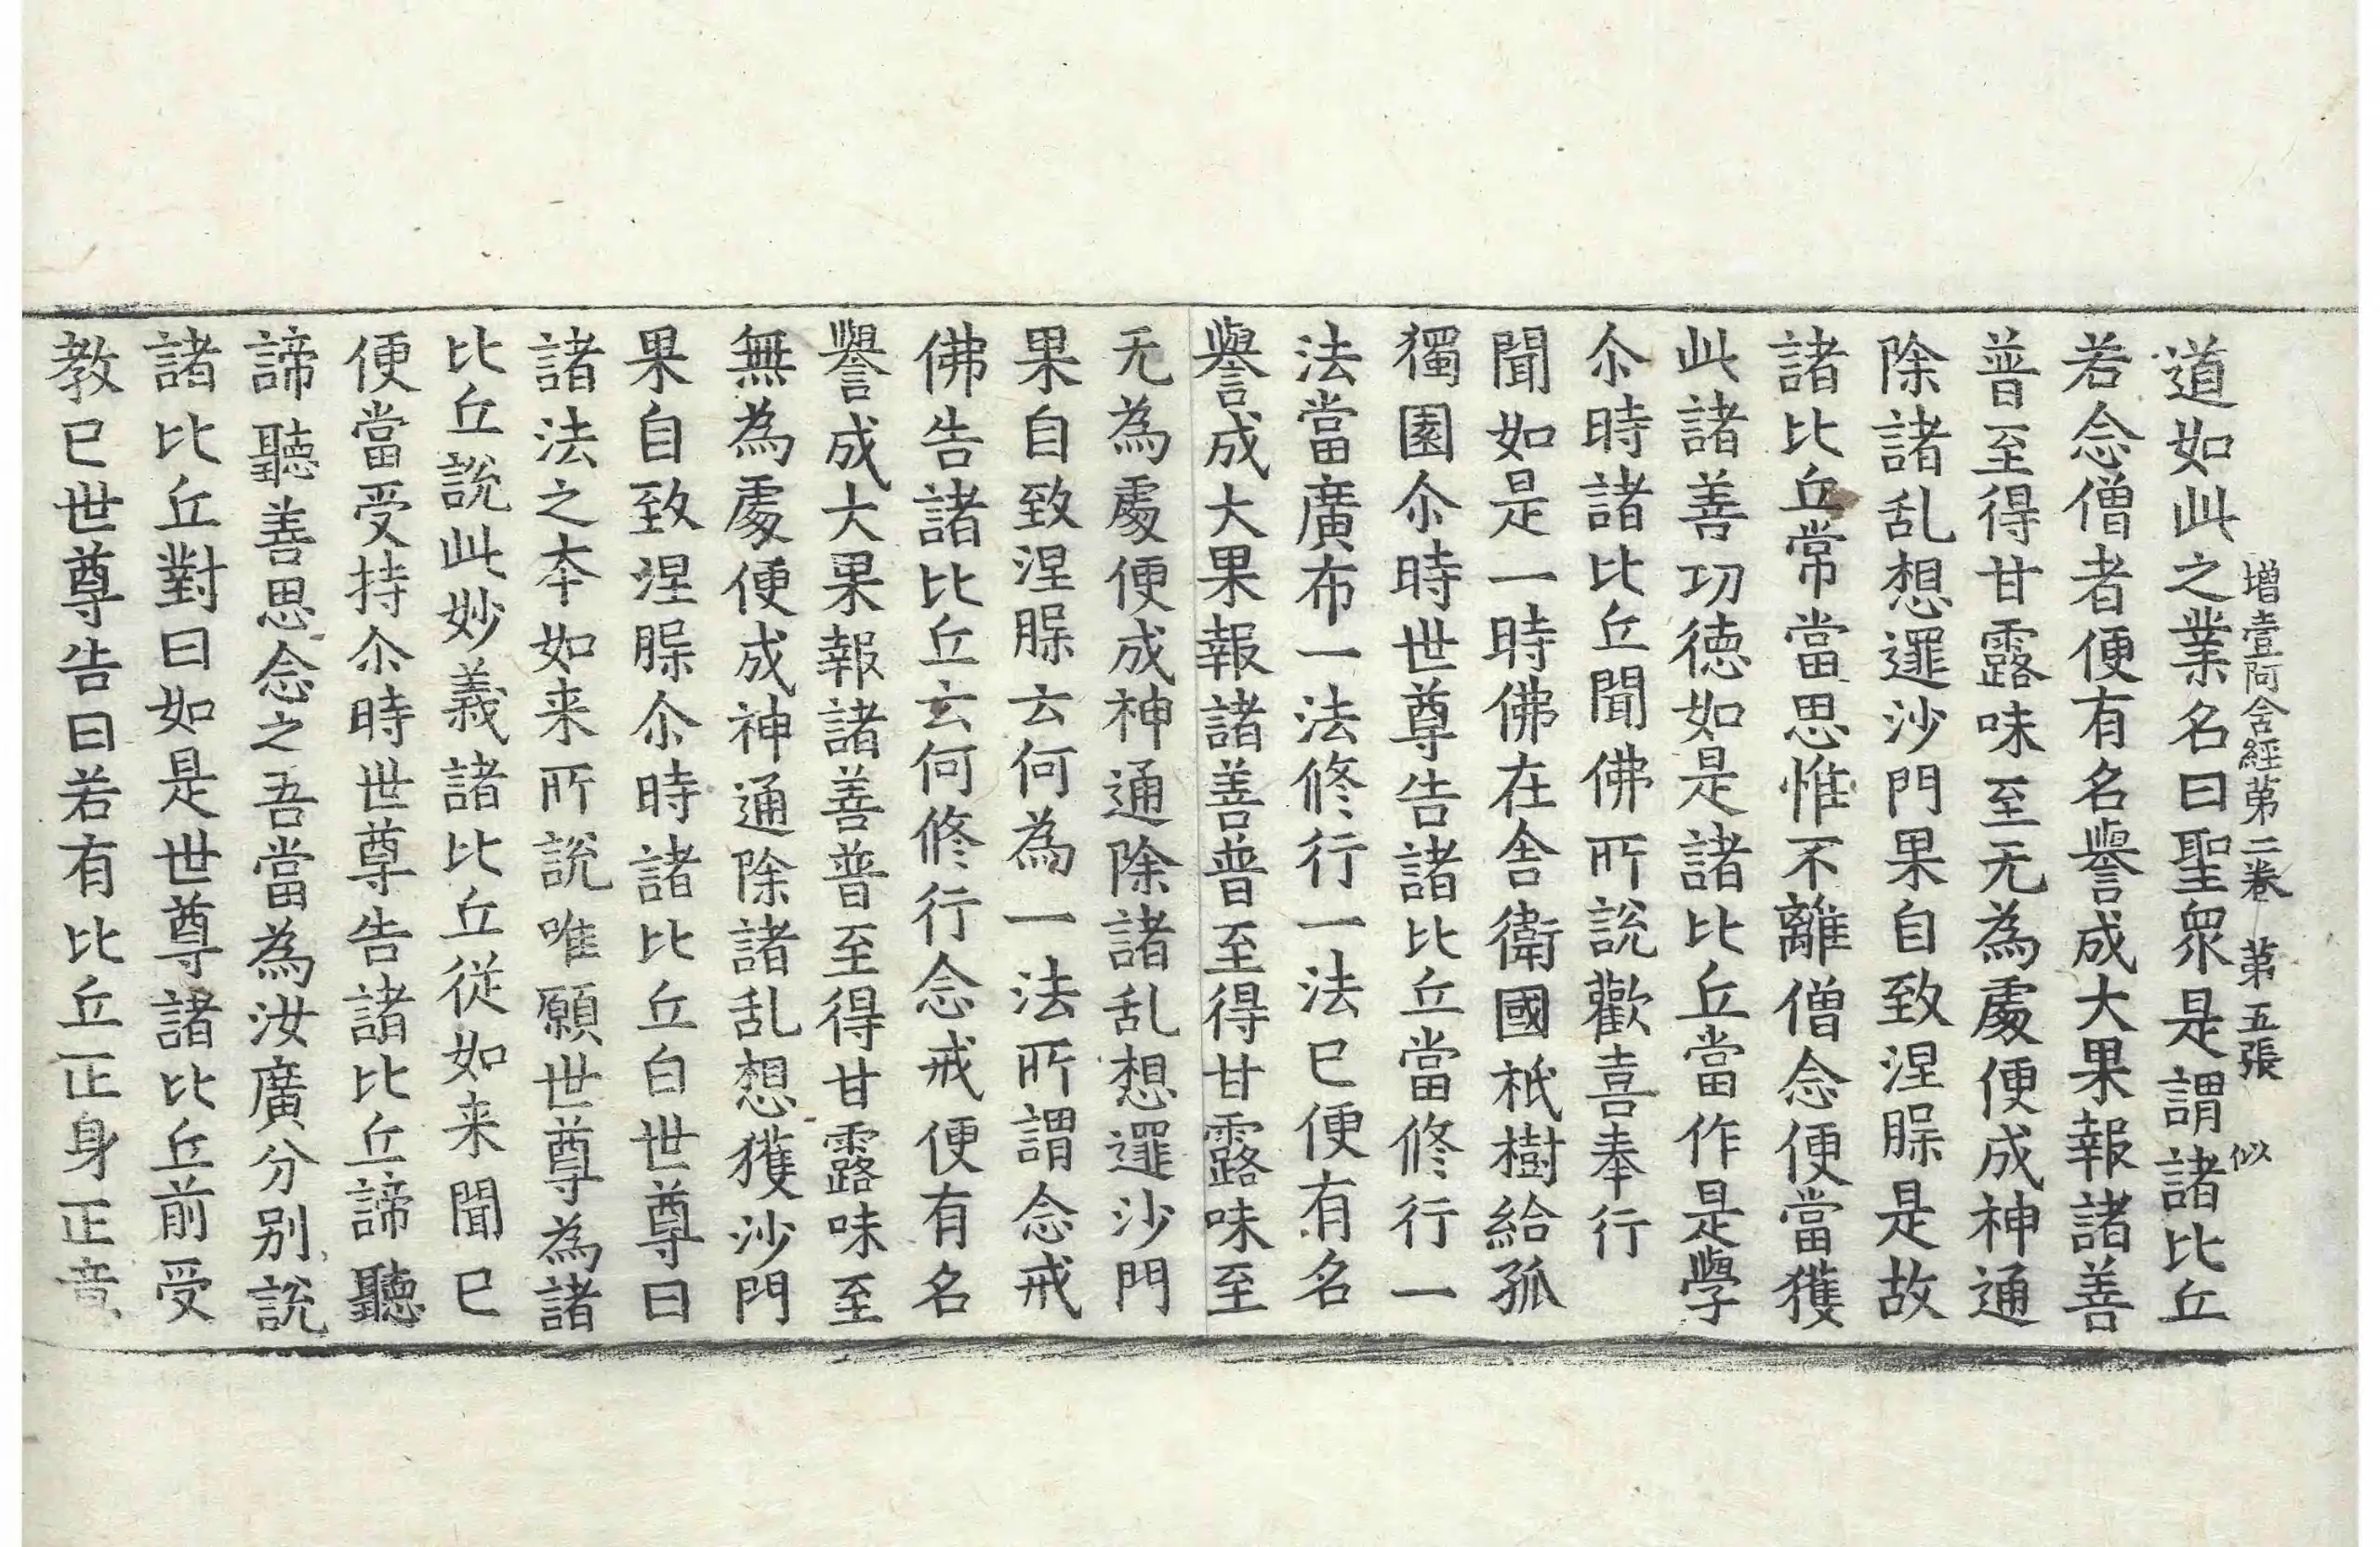 增壹阿含經第二卷 第五張 似
道如此之業名曰聖眾是謂諸比丘
若念僧者便有名譽成大果報諸善
普至得甘露味至无為處便成神通
除諸乱想邏沙門果自致涅脲是故
諸比丘常當思惟不離僧念便當獲
此諸善功徳如是諸比丘當作是學
尒時諸比丘聞佛所說歡喜奉行
聞如是一時佛在舍衛國祇樹給孤
獨園尒時世尊告諸比丘當修行一
法當廣布一法修行一法已便有名
譽成大果報諸善普至得甘露味至
无為處便成神通除諸乱想邏沙門
果自致涅脲云何為一法所謂念戒
佛告諸比丘云何修行念戒便有名
譽成大果報諸善普至得甘露味至
無為處便成神通除諸乱想獲沙門
果自致涅脲尒時諸比丘白世尊曰
諸法之本如来所說唯願世尊為諸
比丘說此妙義諸比丘從如来聞已
便當受持尒時世尊告諸比丘諦聽
諦聽善思念之吾當為汝廣分别說
諸比丘對曰如是世尊諸比丘前受
教已世尊告曰若有比丘正身正意